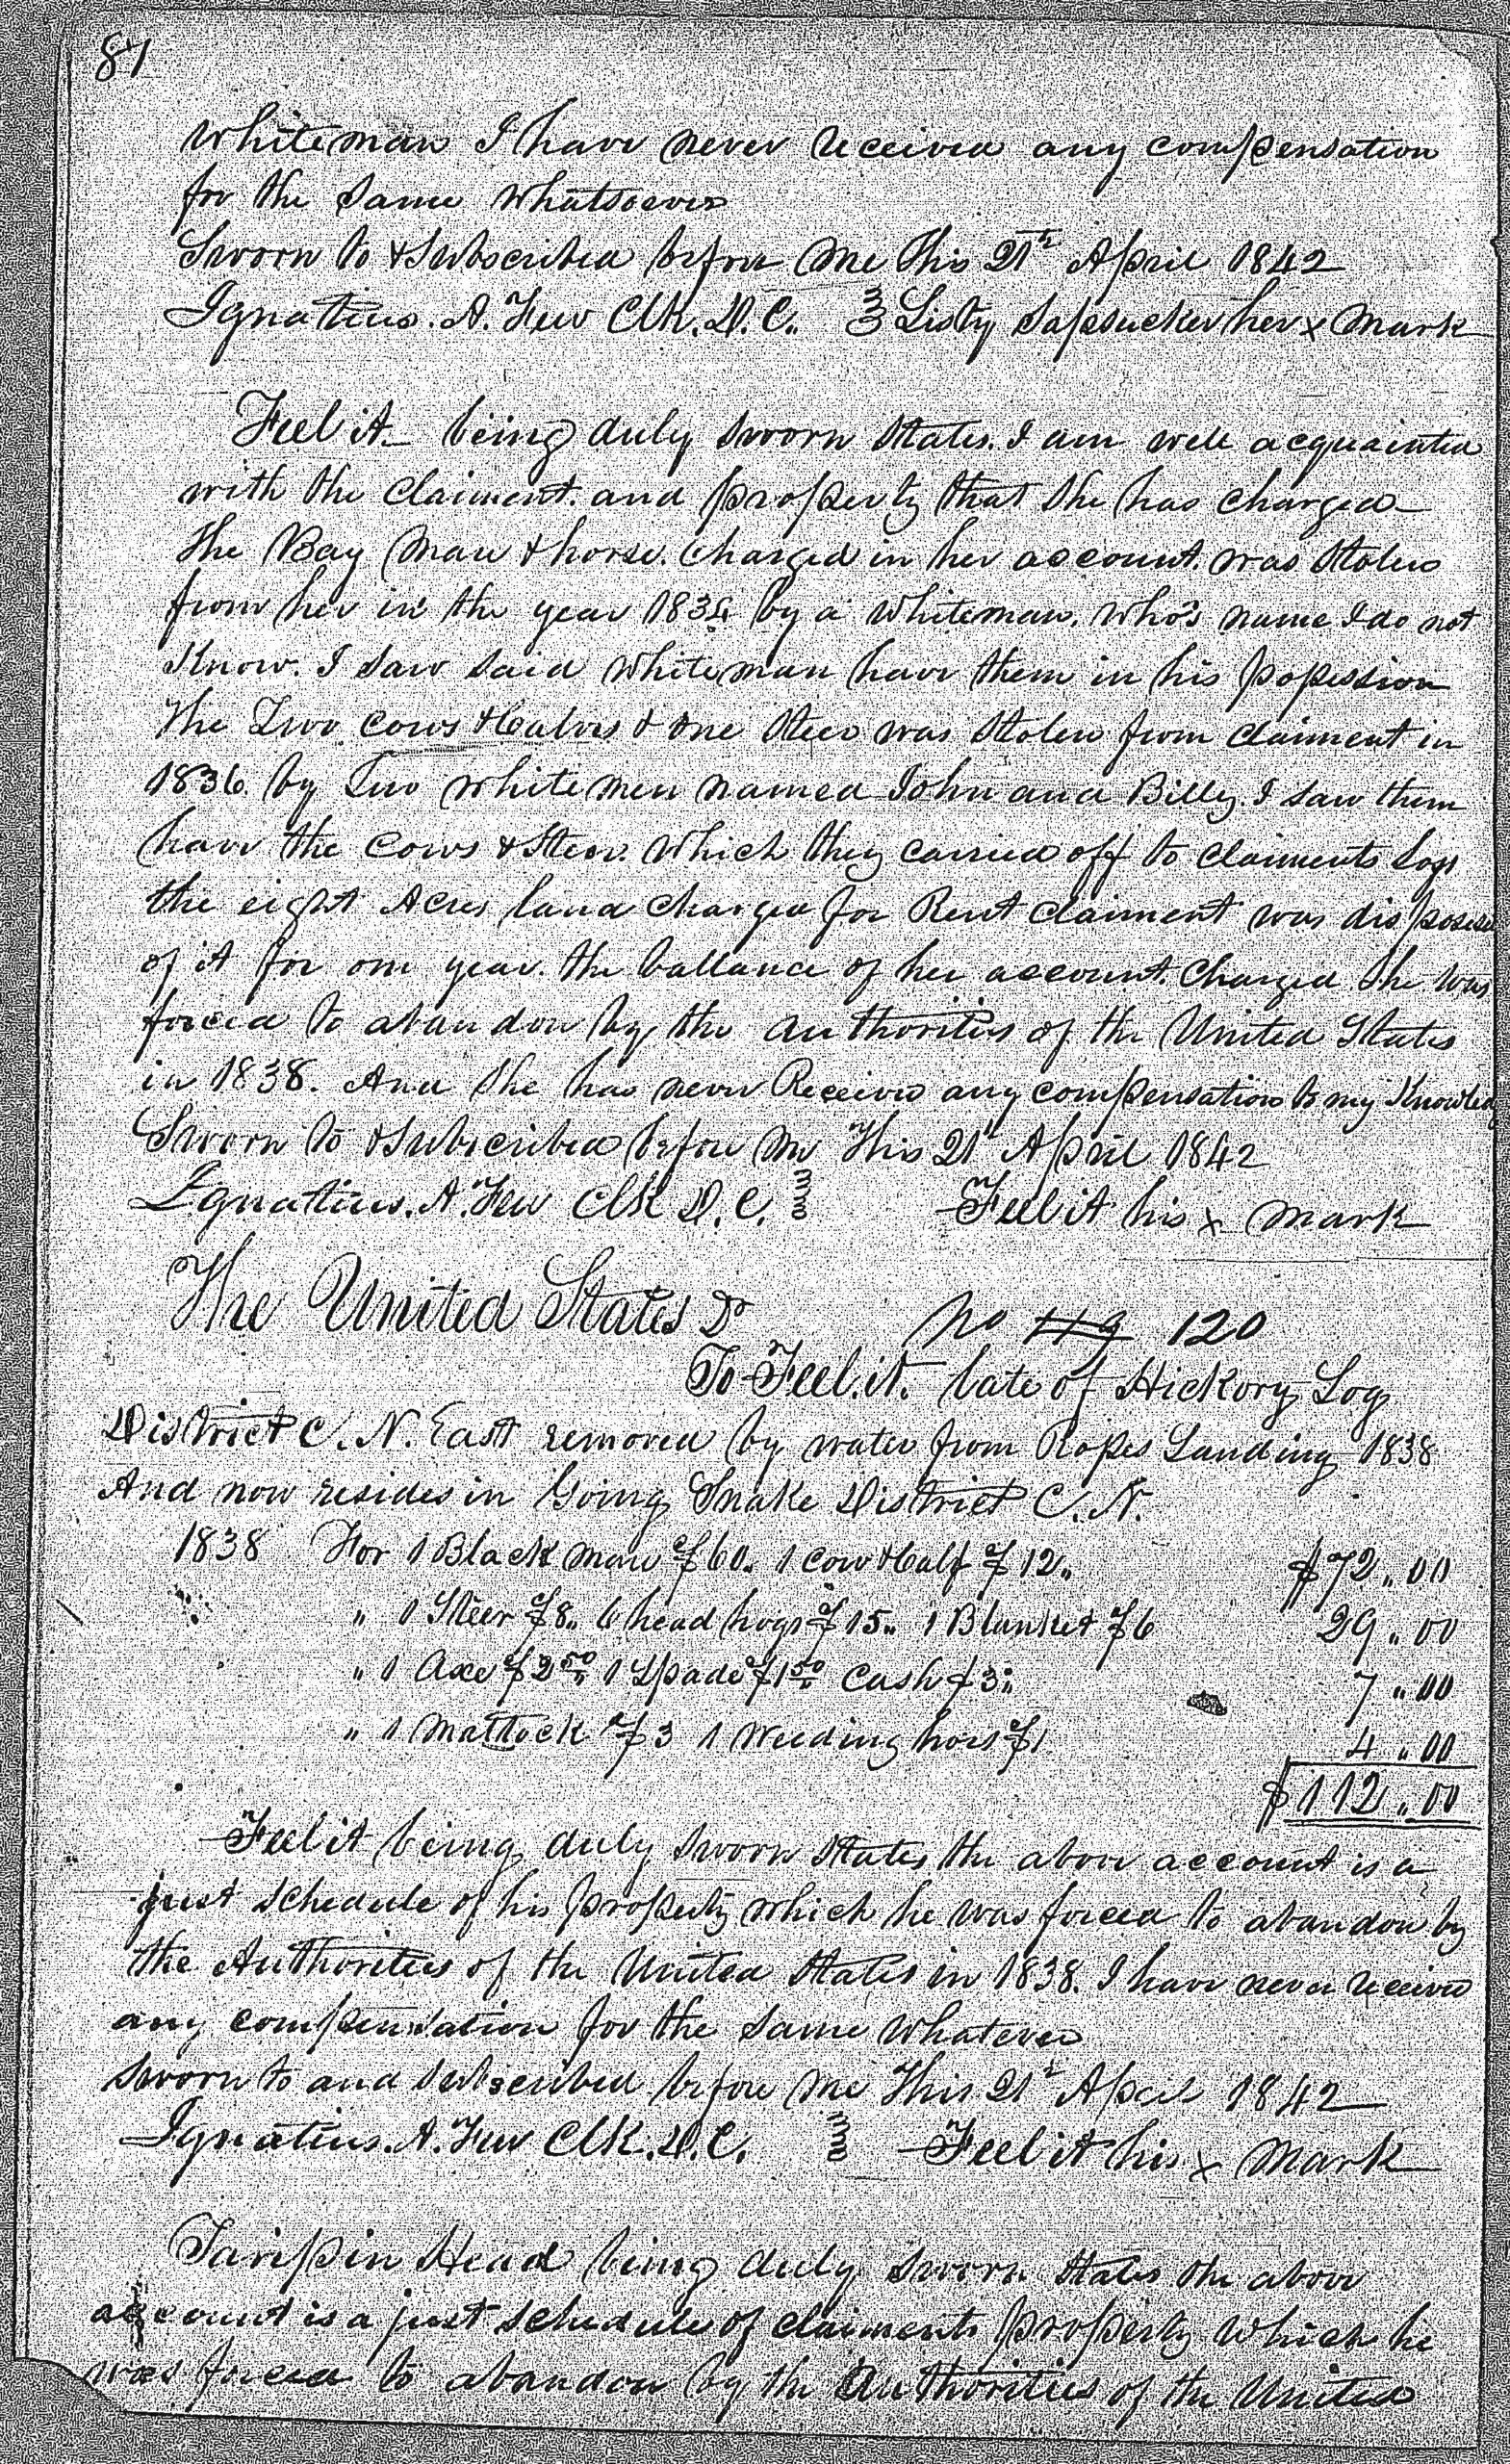 81
Whiteman I have never received any compensation
for the same whatsoever
Sworn to & Subscribed before me this 21st April 1842
Ignatius. A. Few Clk. D. C. Listy Sapsucker her x mark
Feel it being duly sworn states. I am well acquainted
with the claiment. and property that she has charged
the Bay Mare & horse. charged in her account. was stolen
from her in the year 1834 by a whiteman. who's name I do not
Know. I saw said whiteman have them in his possession
The Two cows & Calves & one steer was stolen from claiment in
1836 by two white men named John and Billy. I saw them
have the cows & steer. which they carried off to claiments
the eight Acres land charged for Rent claiment was dispossessed
of it for one year. the ballance of her account. charged she was
forced to abandon by the authorities of the United States
in 1838. And she has never Received any compensation to my Knowledg
Sworn to & Subscribed before me This 21st April 1842
Ignatius. A. Few Clk D. C. Feel it his x mark
The United States Dr No 119 120
To Feel. it. late of Hickory Log
District C. N. East removed by water from Ropes Landing 1838
And now resides in Going Snake District C. N.
1838 For 1 Black mare $60.. 1 cow & Calf $12.. $72..00
" 1 Steer $8.. 6 head hogs $15.. 1 Blanket $6 29..00
" 1 Axe $2.50 1 Spade $1.50 Cash $3.. 7..00
" 1 Mattock $3 1 Weeding hoes $1 4..00
$112..00
Feel it being duly sworn states the above account is a
just schedule of his property which he was forced to abandon by
the Authorities of the United States in 1838. I have never received
any compensation for the same whatever
sworn to and subscribed before me This 21st April 1842
Ignatius. A. Few Clk. D. C. Feel it his x mark
Taripin Head being duly sworn states the above
account is a just schedule of claiments property which he
was forced to abandon by the Authorities of the United